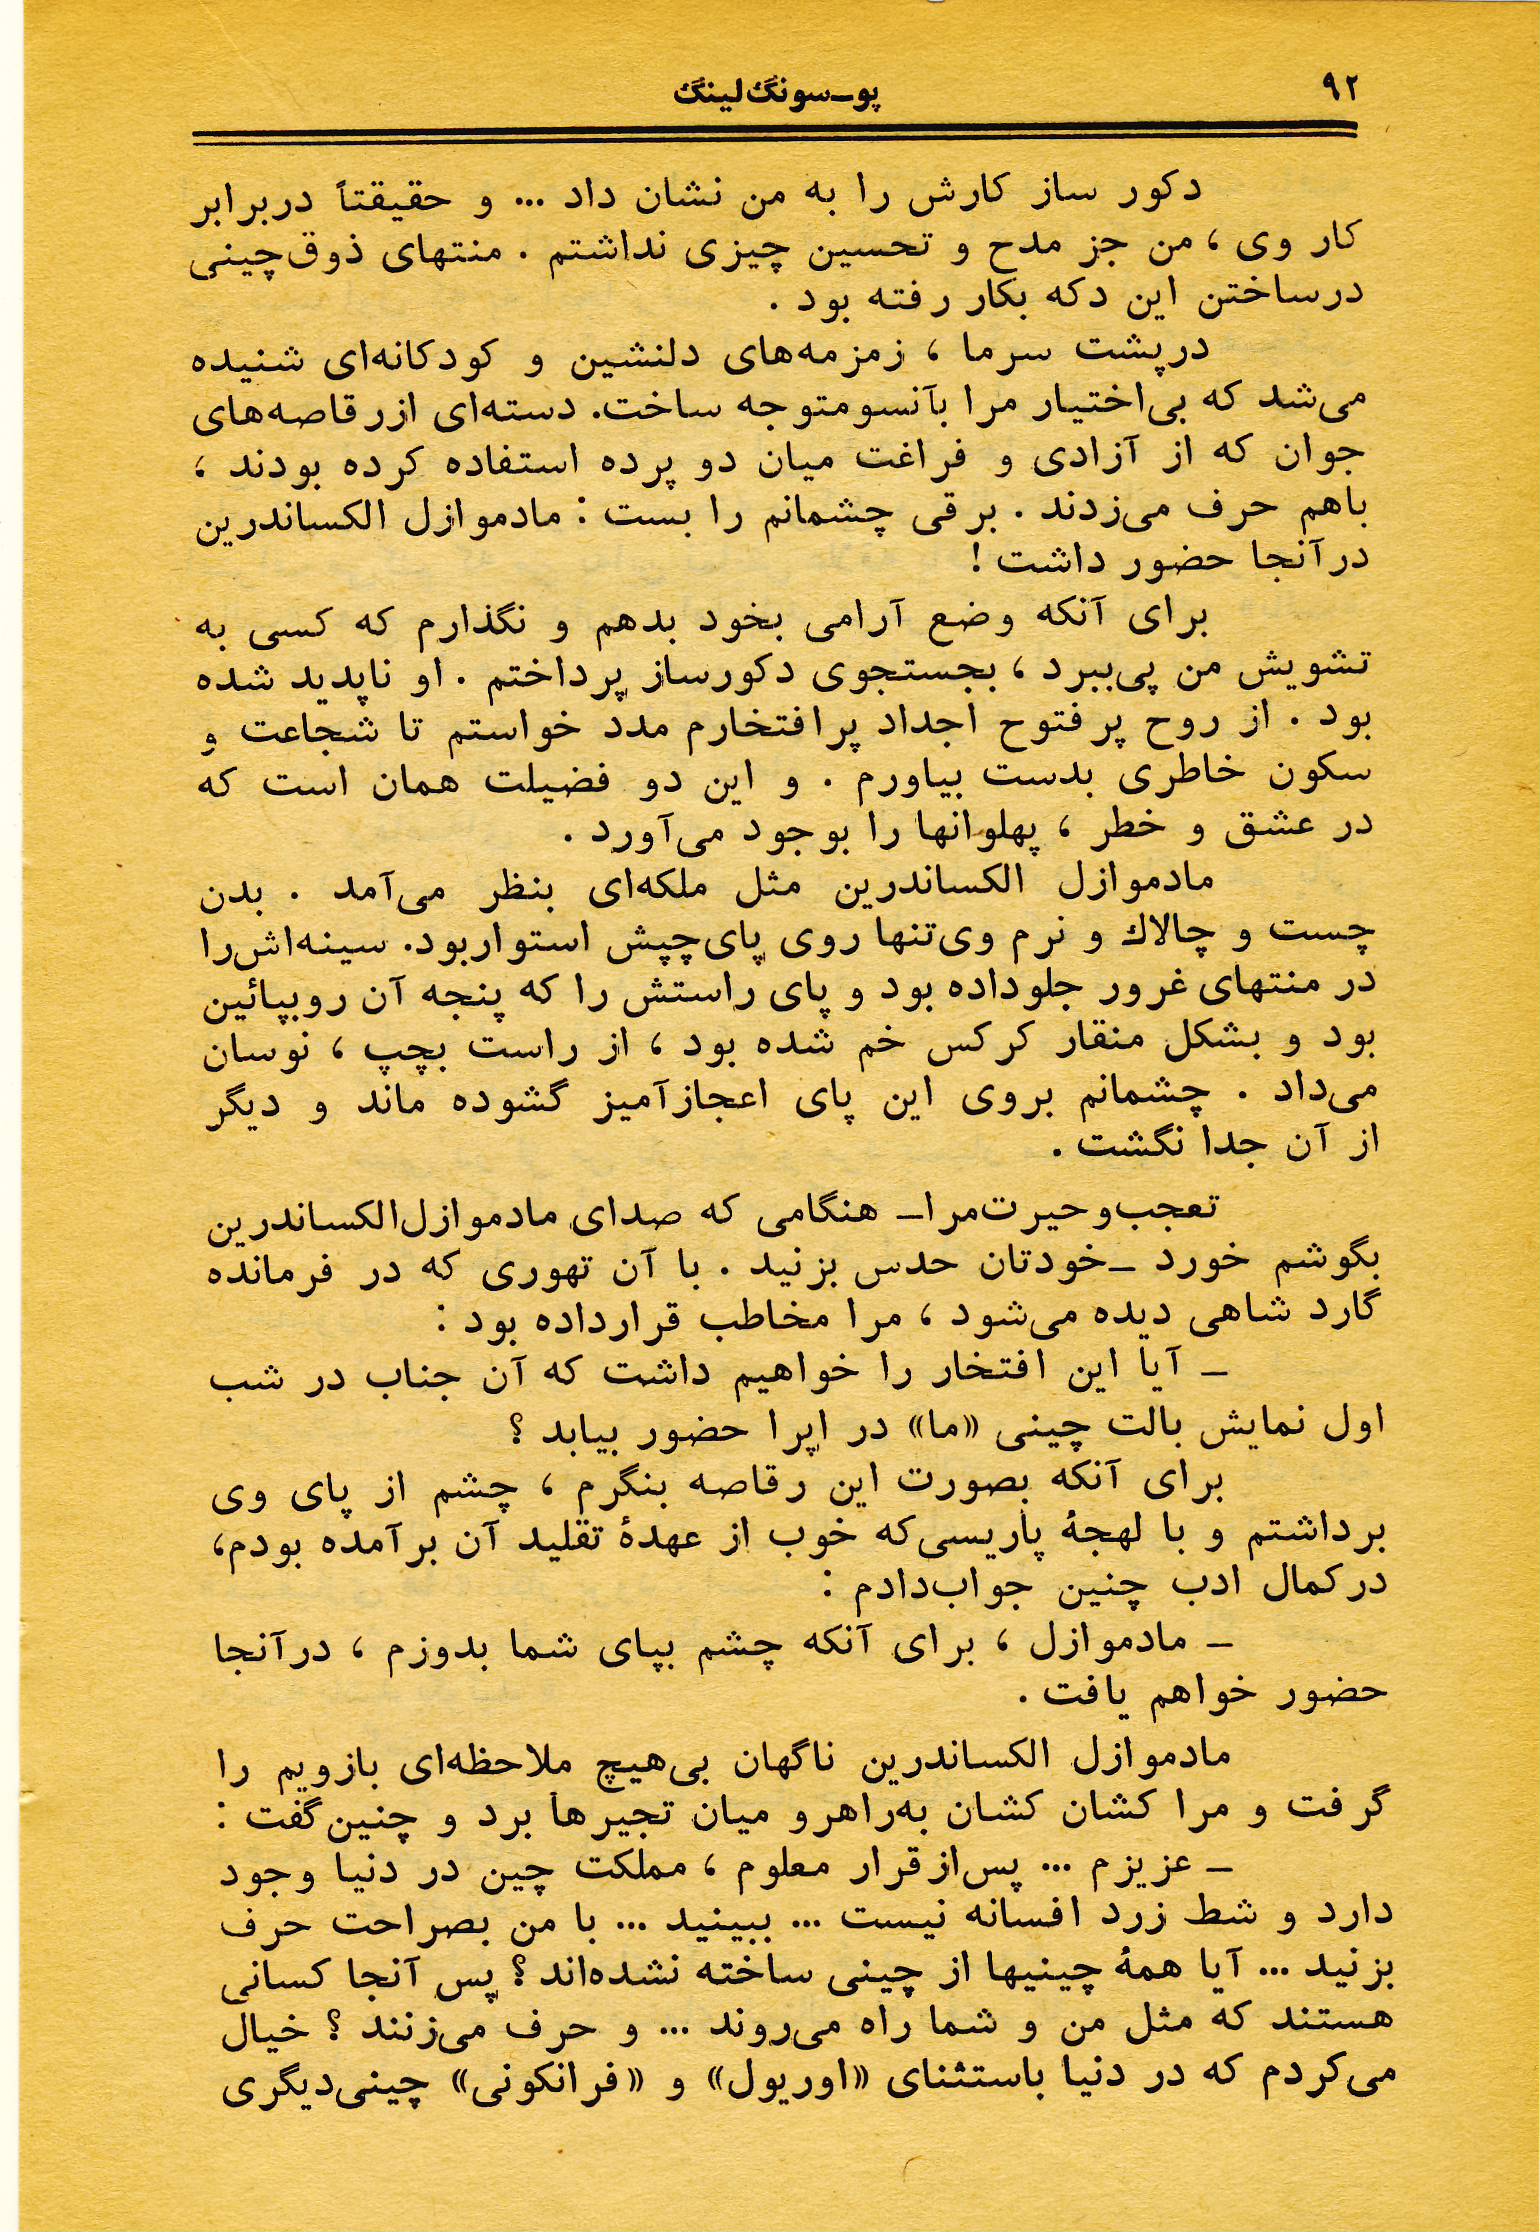 ۹۲
پو_سونگ‌لینگ
دکور ساز کارش را به من نشان داد ... و حقیقتاً دربرابر
کار وی ، من جز مدح و تحسین چیزی نداشتم . منتهای ذوق‌چینی
درساختن این دکه بکار رفته بود .
درپشت سرما ، زمزمه‌های دلنشین و کودکانه‌ای شنیده
می‌شد که بی‌اختیار مرا بآنسومتوجه ساخت. دسته‌ای ازرقاصه‌های
جوان که از آزادی و فراغت میان دو پرده استفاده کرده بودند ،
باهم حرف می‌زدند . برقی چشمانم را بست : مادموازل الکساندرین
درآنجا حضور داشت !
برای آنکه وضع آرامی بخود بدهم و نگذارم که کسی به
تشویش من پی‌ببرد ، بجستجوی دکورساز پرداختم . او ناپدید شده
بود . از روح پرفتوح اجداد پرافتخارم مدد خواستم تا شجاعت و
سکون خاطری بدست بیاورم . و این دو فضیلت همان است که
در عشق و خطر ، پهلوانها را بوجود می‌آورد .
مادموازل الکساندرین مثل ملکه‌ای بنظر می‌آمد . بدن
چست و چالاك و نرم وی‌تنها روی پای‌چپش استواربود. سینه‌اش‌را
در منتهای غرور جلوداده بود و پای راستش را که پنجه آن روبپائین
بود و بشکل منقار کرکس خم شده بود ، از راست بچپ ، نوسان
می‌داد . چشمانم بروی این پای اعجازآمیز گشوده ماند و دیگر
از آن جدا نگشت .
تعجب‌وحیرت‌مرا_ هنگامی که صدای مادموازل‌الکساندرین
بگوشم خورد _خودتان حدس بزنید . با آن تهوری که در فرمانده
گارد شاهی دیده می‌شود ، مرا مخاطب قرارداده بود :
_ آیا این افتخار را خواهیم داشت که آن جناب در شب
اول نمایش بالت چینی «ما» در اپرا حضور بیابد ؟
برای آنکه بصورت این رقاصه بنگرم ، چشم از پای وی
برداشتم و با لهجهٔ پاریسی‌که خوب از عهدهٔ تقلید آن برآمده بودم،
درکمال ادب چنین جواب‌دادم :
_ مادموازل ، برای آنکه چشم بپای شما بدوزم ، درآنجا
حضور خواهم یافت .
مادموازل الکساندرین ناگهان بی‌هیچ ملاحظه‌ای بازویم را
گرفت و مرا کشان کشان به‌راهرو میان تجیرها برد و چنین‌گفت :
_ عزیزم ... پس‌ازقرار معلوم ، مملکت چین در دنیا وجود
دارد و شط زرد افسانه نیست ... ببینید ... با من بصراحت حرف
بزنید ... آیا همهٔ چینیها از چینی ساخته نشده‌اند ؟ پس آنجا کسانی
هستند که مثل من و شما راه می‌روند ... و حرف می‌زنند ؟ خیال
می‌کردم که در دنیا باستثنای «اوریول» و «فرانکونی» چینی‌دیگری